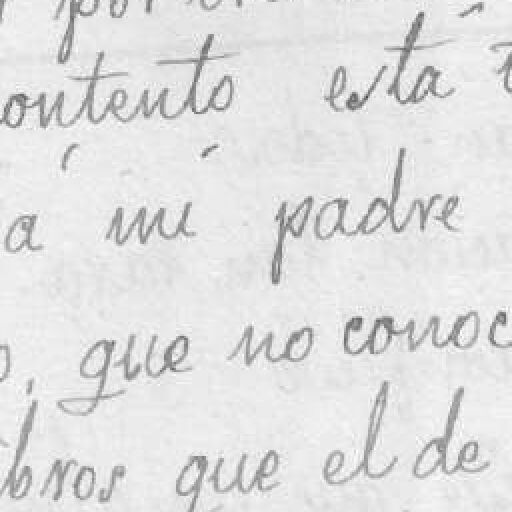 por
ontento está
á mí padre
o, que no conoc
ibros que el de